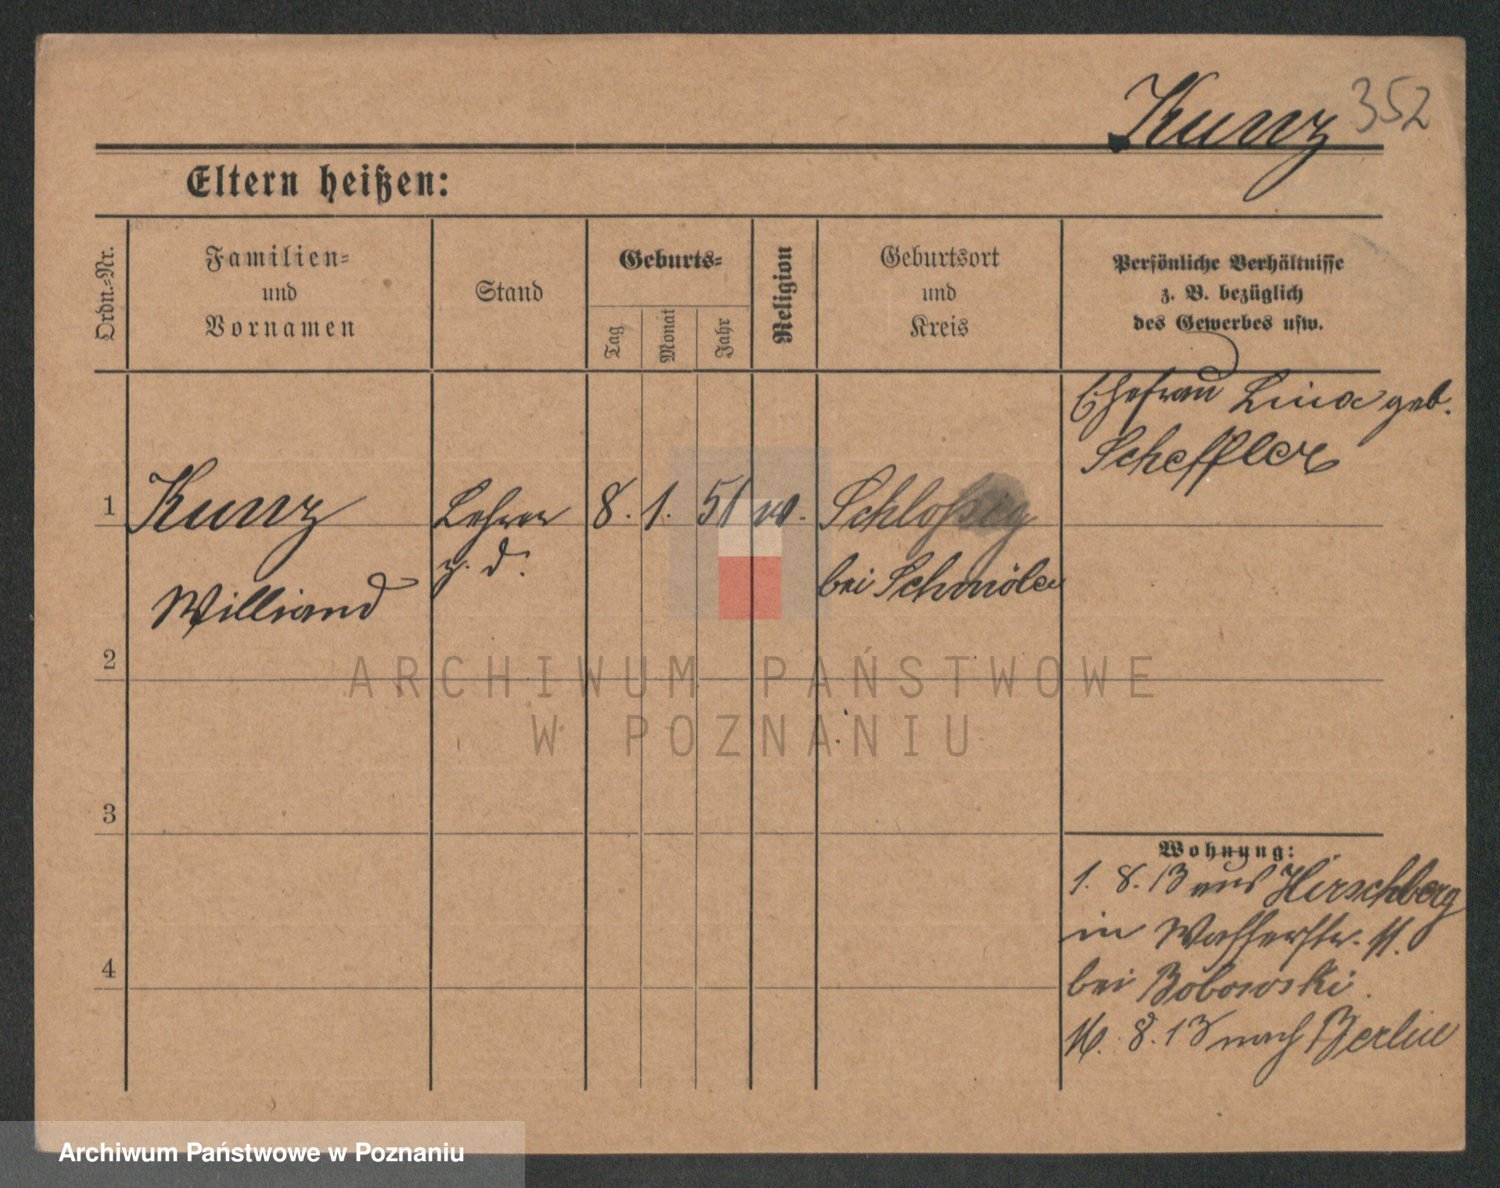 Kunz 352
Eltern heißen:
Ordn.=Nr.
Familien=
und
Vornamen
Stand
Geburts=
Tag
Monat
Jahr
Religion
Geburtsort
und
Kreis
Persönliche Verhältnisse
z. B. bezüglich
des Gewerbes usw.
Ehefrau Lina geb.
Scheffler
1 Kunz Lehrer 8. 1. 51 Schloßig
a. D.
bei Schmölln
2
3
4
Wohnung:
1. 8. 13 aus Hirschberg
in Wasserstr. 11.
bei Bobowski.
16. 8. 13 nach Berlin
ARCHIWUM PAŃSTWOWE
W POZNANIU
Archiwum Państwowe w Poznaniu